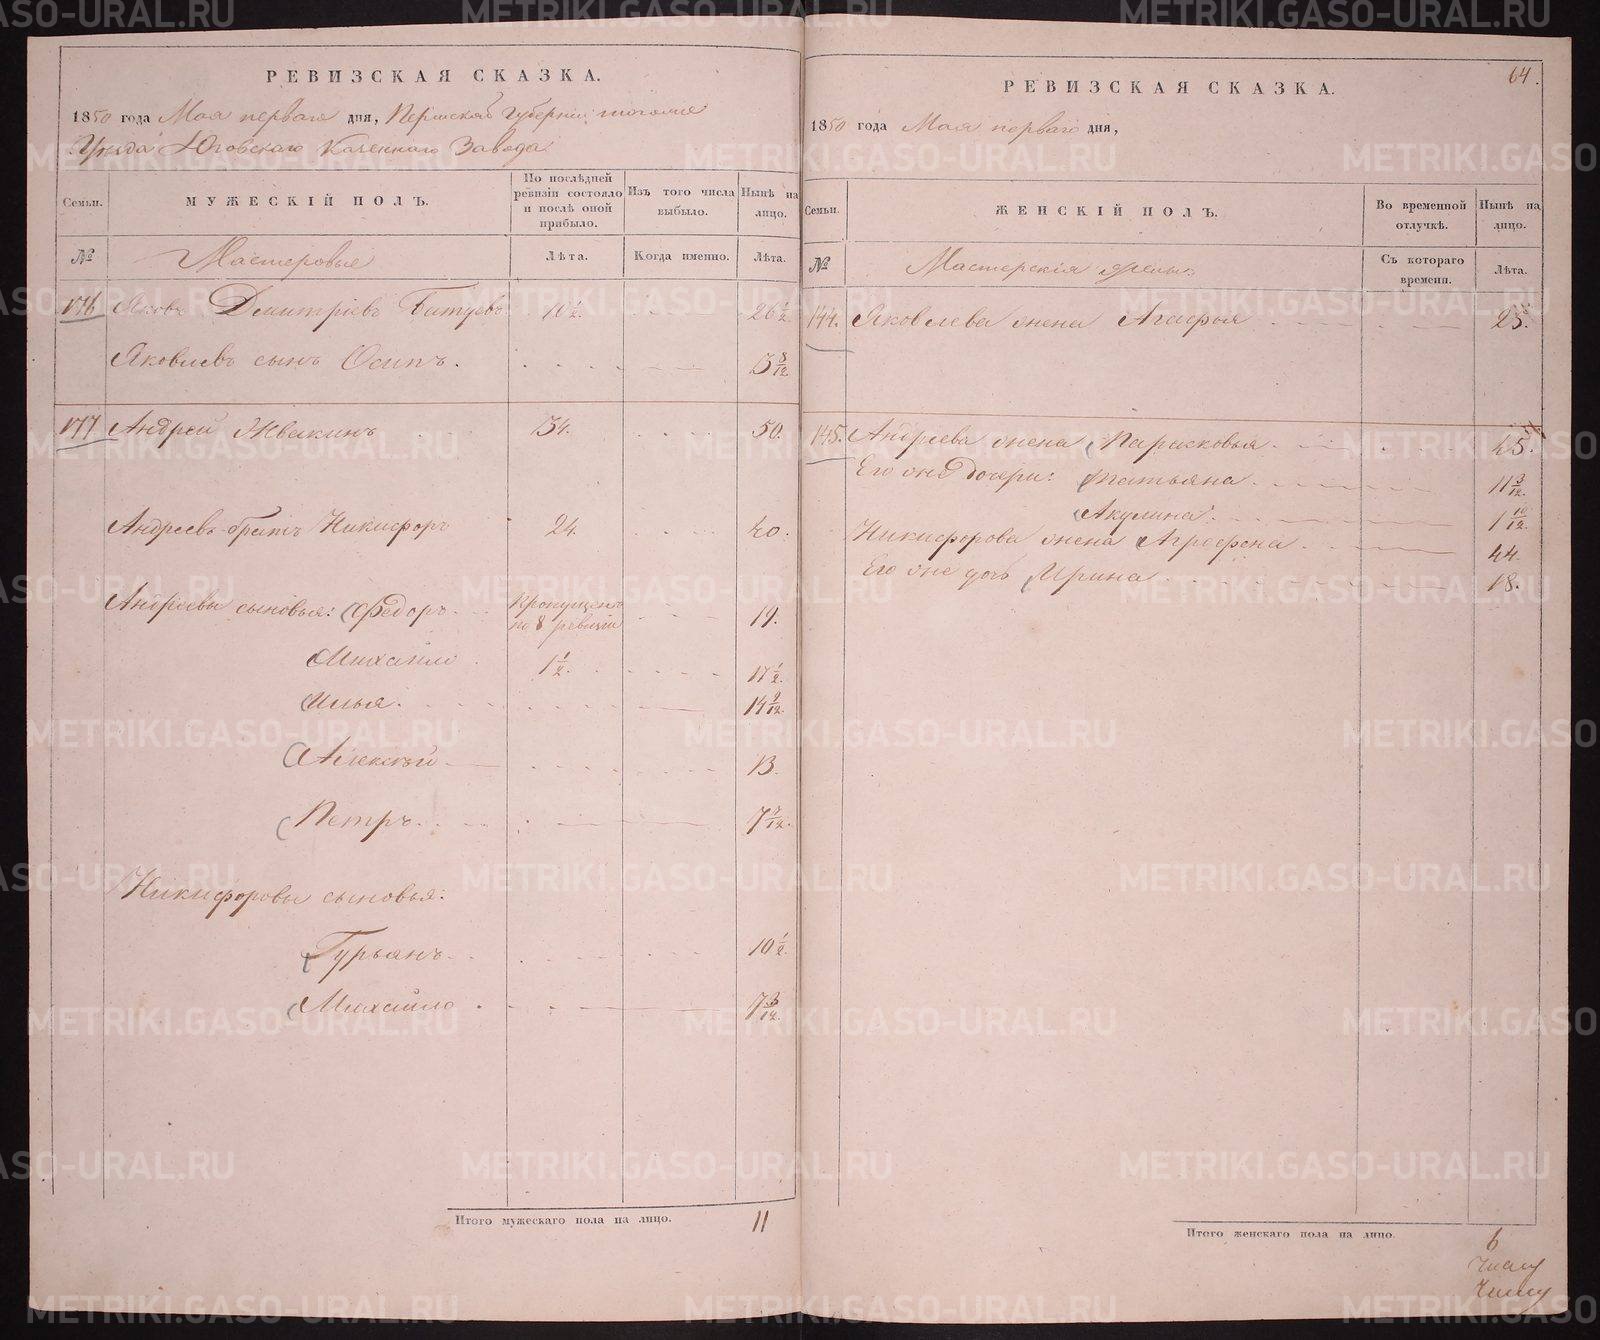 РЕВИЗСКАЯ СКАЗКА.
1850 года Мая перваго дня, Пермской Губернии тогоже
Уезда Юговскаго Казеннаго Завода
Семьи.
МУЖЕСКІЙ ПОЛЪ.
По послѣдней ревизіи состояло и послѣ оной прибыло.
Изъ того числа выбыло.
Нынѣ на лицо.
№
Мастеровые
Лѣта.
Когда именно.
Лѣта.
176 Яковъ Дмитріевъ 10 1/2. 26 1/2
Яковлевъ сынъ Осипъ. 3 8/12
177 Андрей Жвакинъ 34. 50.
Андреевъ братъ Никифоръ 24. 40.
Андреевы сыновья: Федоръ Пропущенъ по 8 ревизіи 19.
Михайло 1 1/2. 17 1/2.
Илья. 14 9/12.
Алексѣй 13.
Петръ. 7 7/12.
Никифоровы сыновья:
Гурьянъ. 10 1/2
Михайло 7 3/12.
Итого мужескаго пола на лицо. 11
64.
РЕВИЗСКАЯ СКАЗКА.
1850 года Мая перваго дня,
Семьи.
ЖЕНСКІЙ ПОЛЪ.
Во временной отлучкѣ.
Нынѣ на лицо.
№
Мастерскія жены
Съ котораго времени.
Лѣта.
144. Яковлева жена Агафья 25.
145. Андреева жена Парасковья 45.
Его же дочери: Татьяна 11 3/12.
Акулина. 1 10/12.
Никифорова жена Агрофена 44
Его же дочь Ирина 18.
Итого женскаго пола на лицо. 6
METRIKI.GASO-URAL.RU